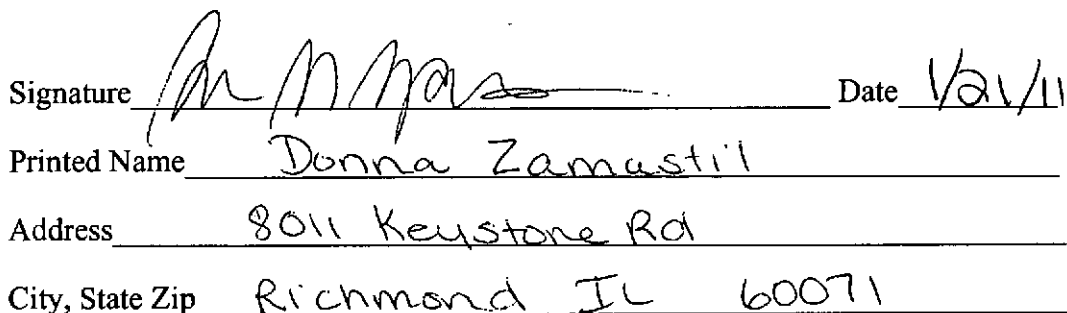 Signature Date 1/21/11
Printed Name Donna Zamastil
Address 8011 Keystone Rd
City, State Zip Richmond IL 60071